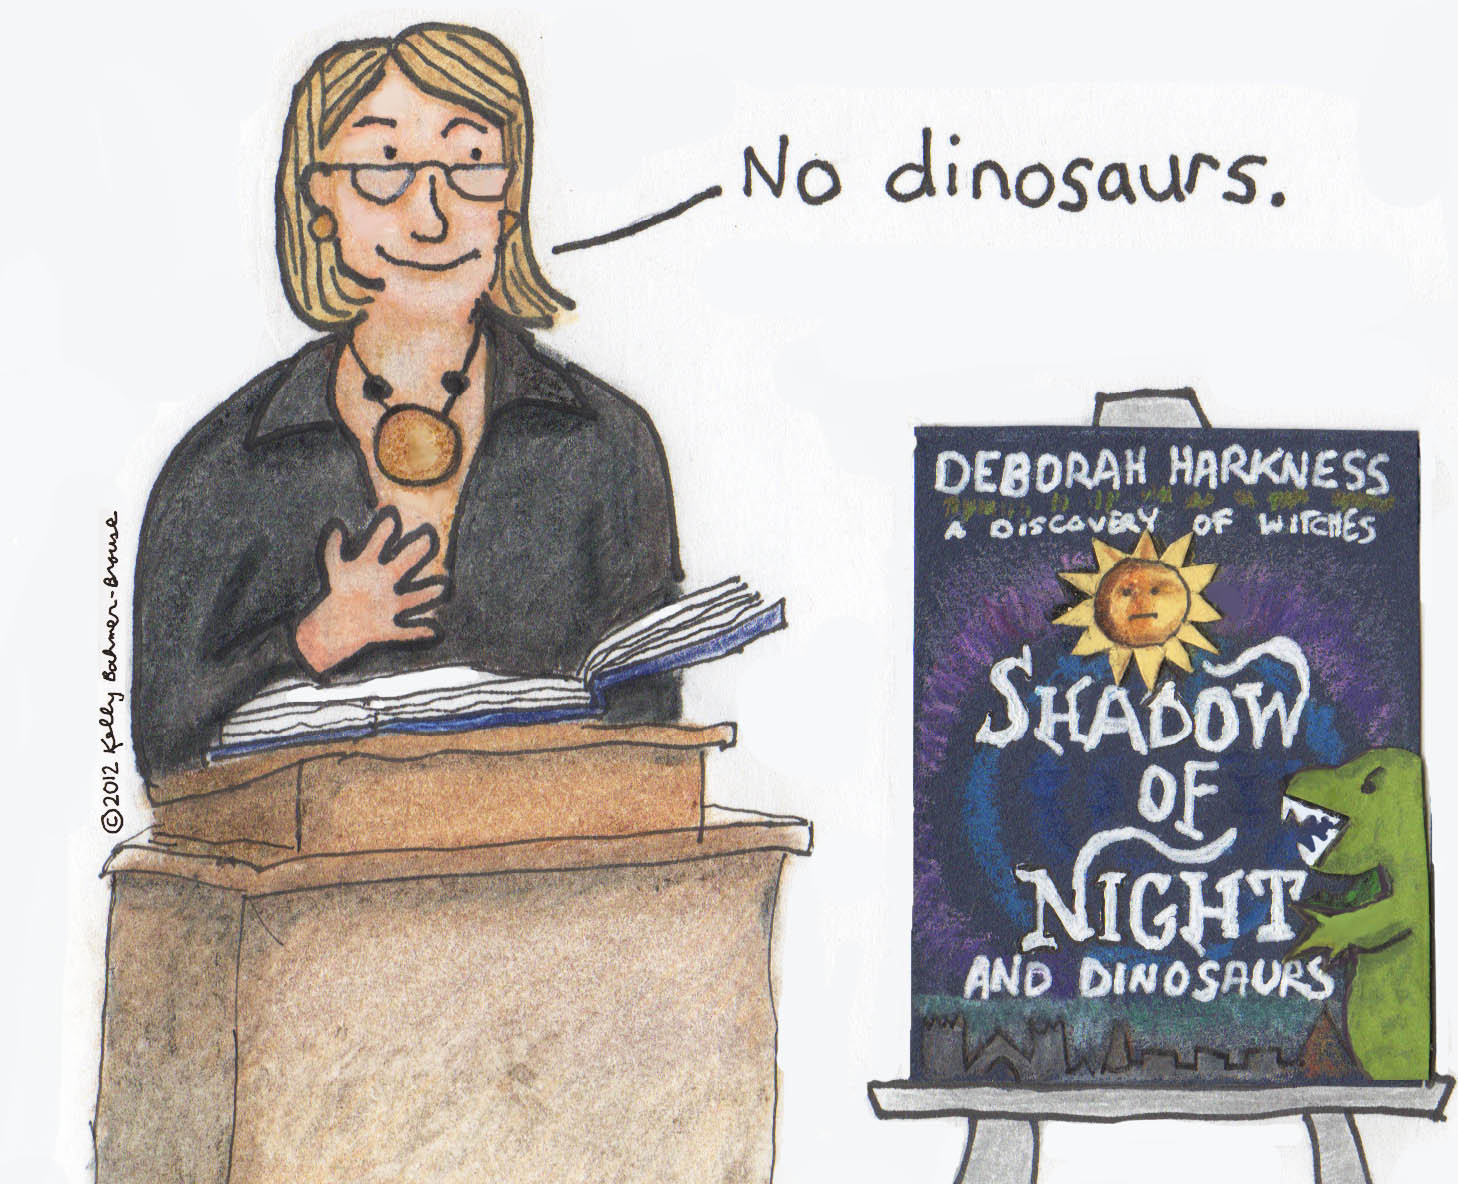 No dinosaurs.
DEBORAH HARKNESS
A DISCOVERY OF WITCHES
SHADOW
OF
NIGHT
AND DINOSAURS
©2012 Kelly Bahmer-Brouse